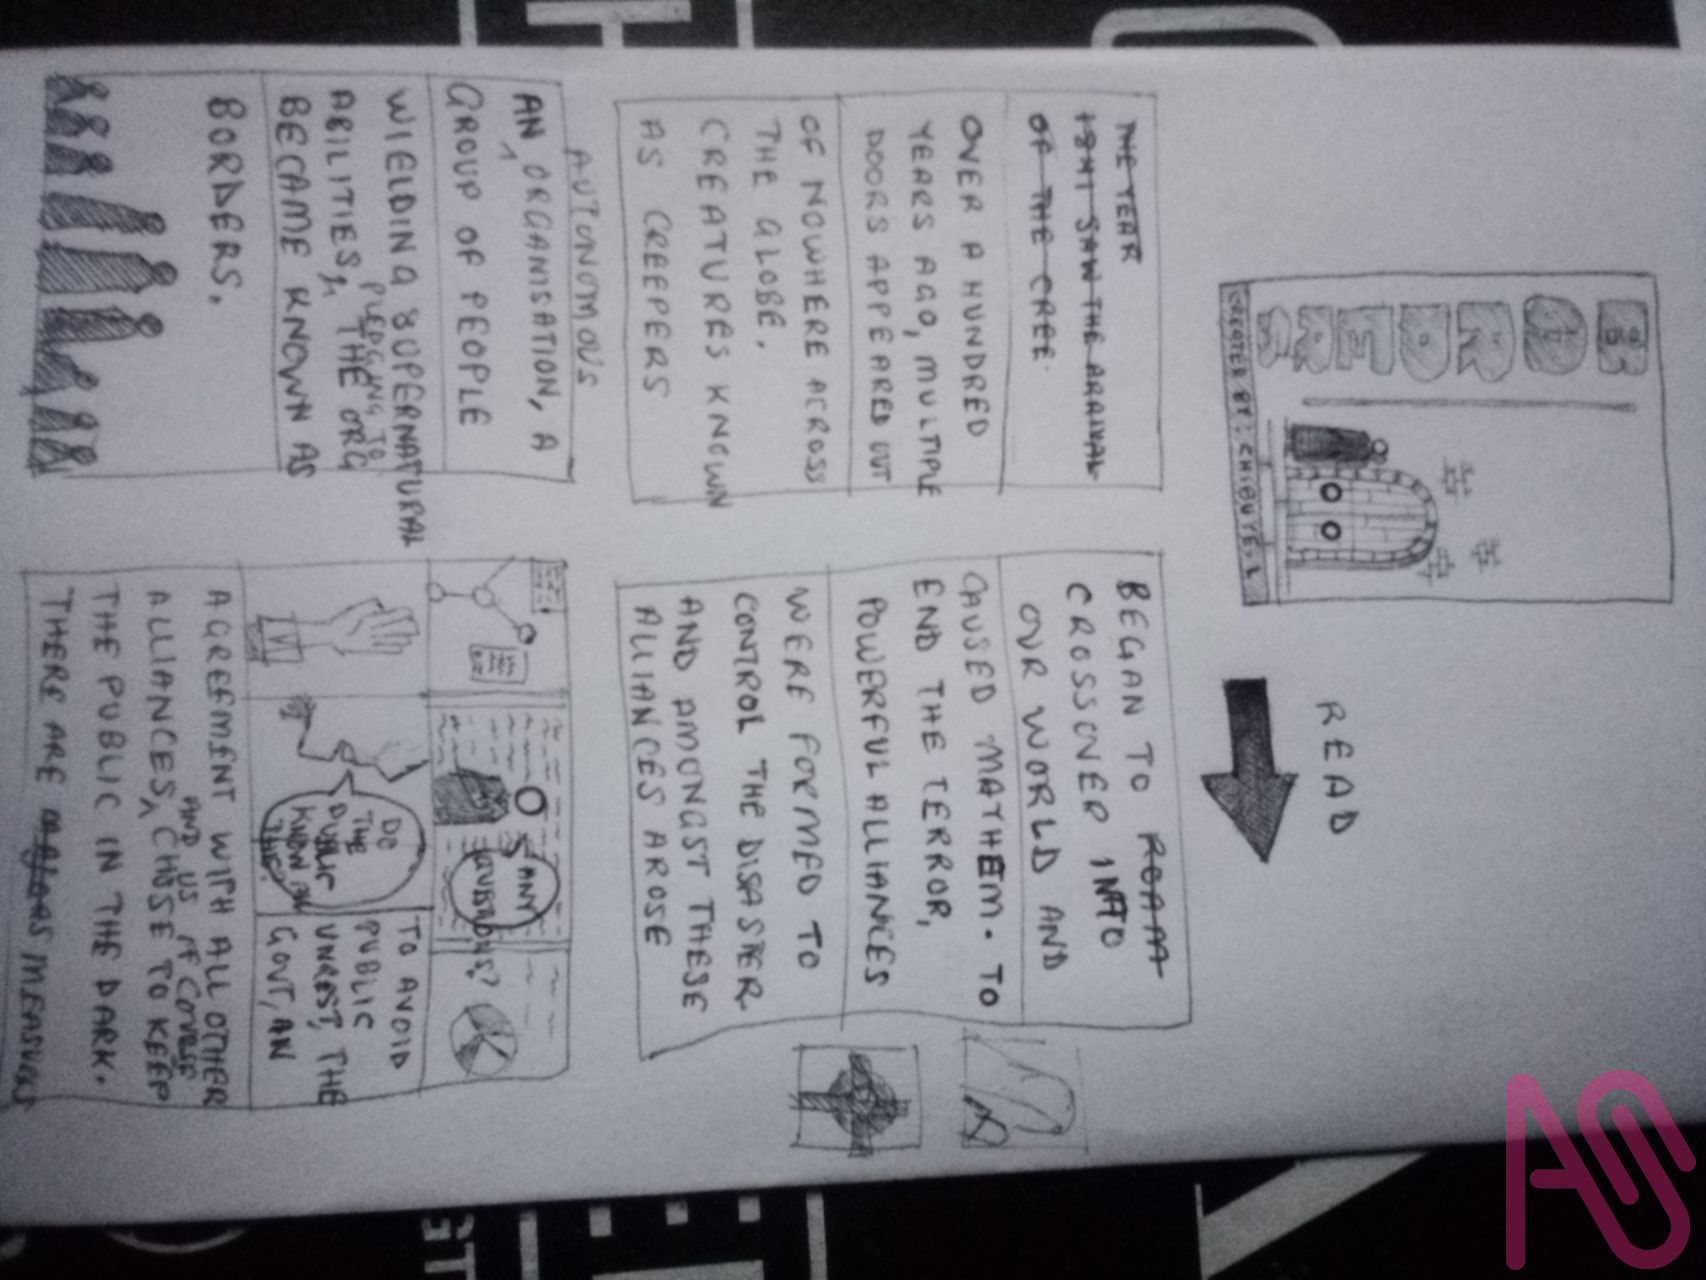 BORDERS
CREATED BY: CHIBUYE.L
READ
THE YEAR
1841 SAW THE ARRIVAL
OF THE CREE.
OVER A HUNDRED
YEARS AGO, MULTIPLE
DOORS APPEARED OUT
OF NOWHERE ACROSS
THE GLOBE.
CREATURES KNOWN
AS CREEPERS
BEGAN TO ROAM
CROSSOVER INTO
OUR WORLD AND
CAUSED MAYHEM. TO
END THE TERROR,
POWERFUL ALLIANCES
WERE FORMED TO
CONTROL THE DISASTER
AND AMONGST THESE
ALLIANCES AROSE
AUTONOMOUS
AN ORGANISATION, A
GROUP OF PEOPLE
WIELDING SUPERNATURAL
PLEDGING TO
ABILITIES, THE ORG
BECAME KNOWN AS
BORDERS.
ANY
QUESTIONS?
DO
THE
PUBLIC
KNOW ON
THIS?
TO AVOID
PUBLIC
UNREST, THE
GOVT, AN
AGREEMENT WITH ALL OTHER
AND US OF COURSE
ALLIANCES, CHOSE TO KEEP
THE PUBLIC IN THE DARK.
THERE ARE MEASURES